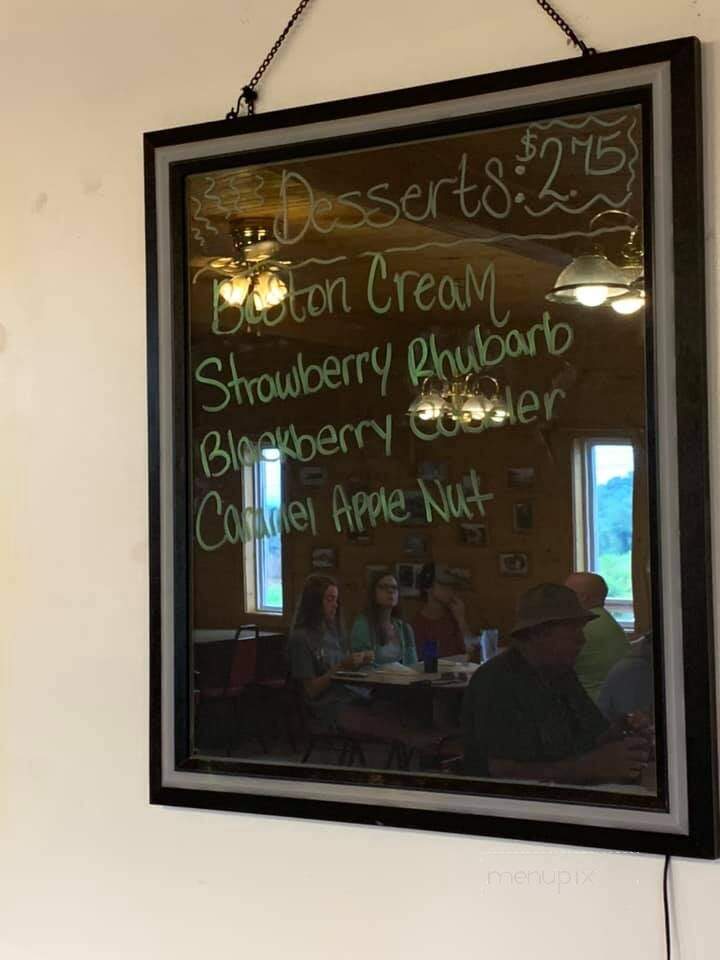 Desserts: $2.75
Boston Cream
Strawberry Rhubarb
Blackberry Cobbler
Caramel Apple Nut
menupix